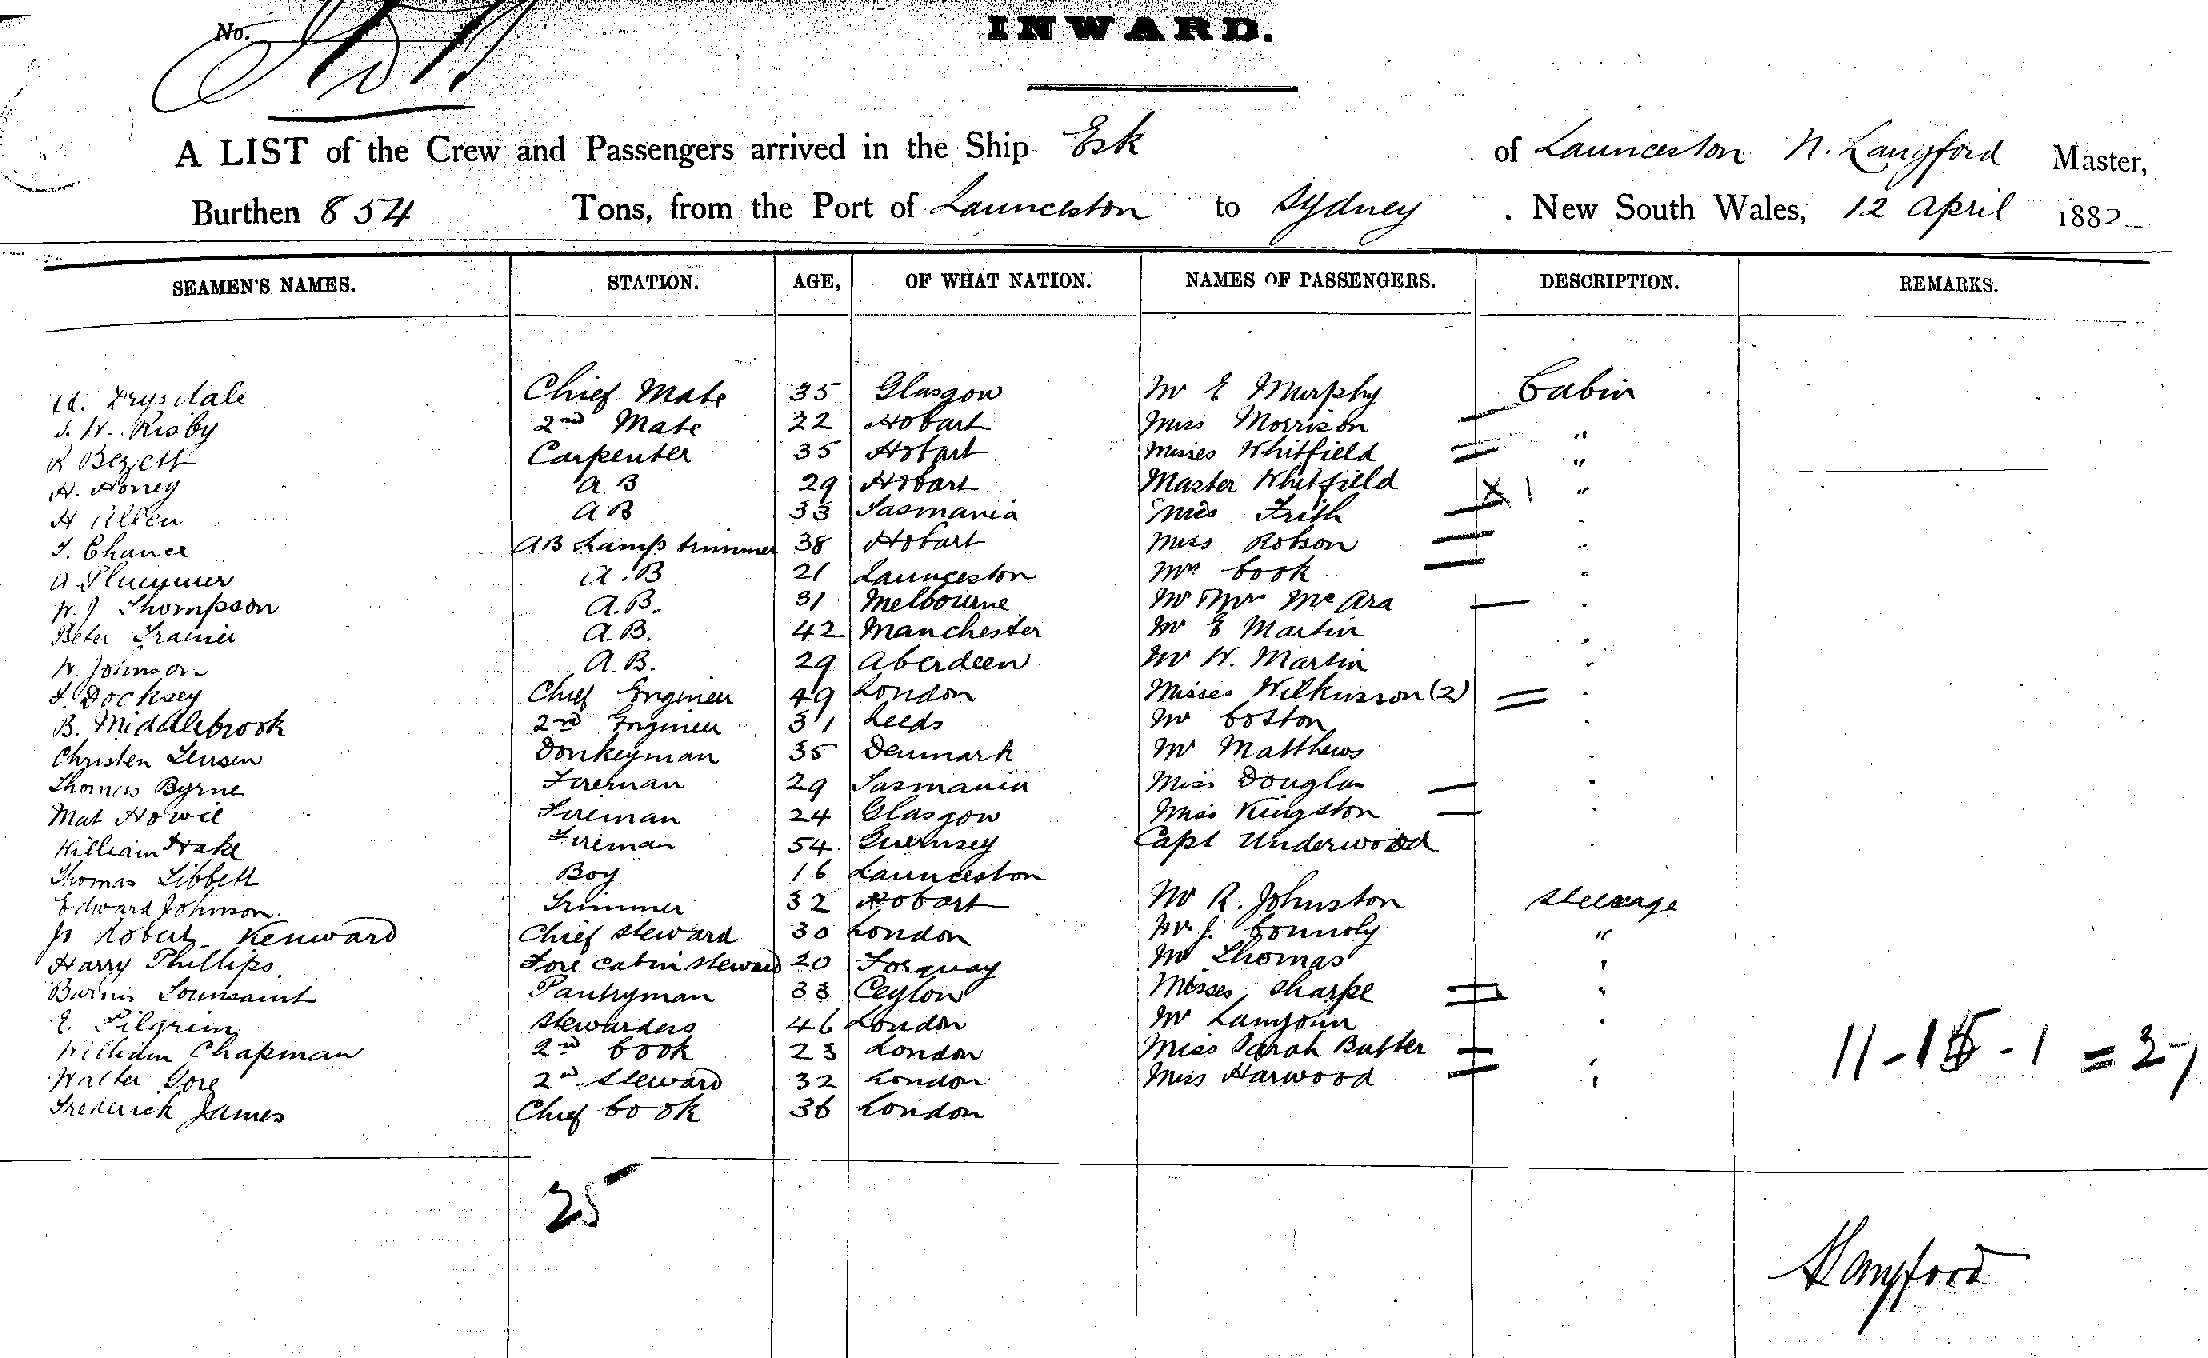 No.
INWARD.
A LIST of the Crew and Passengers arrived in the Ship Esk of Launceston N. Langford Master,
Burthen 854 Tons, from the Port of Launceston to Sydney . New South Wales, 12 April 1882
SEAMEN'S NAMES. STATION. AGE, OF WHAT NATION. NAMES OF PASSENGERS. DESCRIPTION. REMARKS.
Drysdale Chief Mate 35 Glasgow Mr E Murphy Cabin
Risby 2nd Mate 22 Hobart Miss Morrison "
R Bezett Carpenter 35 Hobart Misses Whitfield "
H. Honey A B 29 Hobart Master Whitfield X 1 "
H Allen A B 33 Tasmania Miss Frith "
T. Chance AB Lamp trimmer 38 Hobart Miss Robson "
A. B 21 Launceston Mrs Cook "
W. J Thompson A. B. 31 Melbourne Mr & Mrs McAra "
Peter Trainer A. B. 42 Manchester Mr E Martin "
W. Johnson A. B. 29 Aberdeen Mr W. Martin "
Docksey Chief Engineer 49 London Misses Wilkinson (2) "
B. Middlebrook 2nd Engineer 31 Leeds Mr Coston "
Christen Jensen Donkeyman 35 Denmark Mr Matthews "
Thomas Byrne Fireman 29 Tasmania Miss Douglas "
Mat Howie Fireman 24 Glasgow Miss Kingston "
William Hake Fireman 54 Guernsey Capt Underwood
Thomas Tibbett Boy 16 Launceston
Edward Johnson. Trimmer 32 Hobart Mr R. Johnston Steerage
Robert Kenward Chief Steward 30 London Mr J. Connoly "
Harry Phillips Fore cabin steward 20 Torquay Mr Thomas "
Tounsaint Pantryman 33 Ceylon Misses Sharpe "
E. Pilgrim Stewardess 46 London Mr "
William Chapman 2nd Cook 23 London Miss Sarah Butter "
Walter Gore 2nd Steward 32 London Miss Harwood "
Frederick James Chief Cook 36 London
11-15-1 = 27
25
Langford